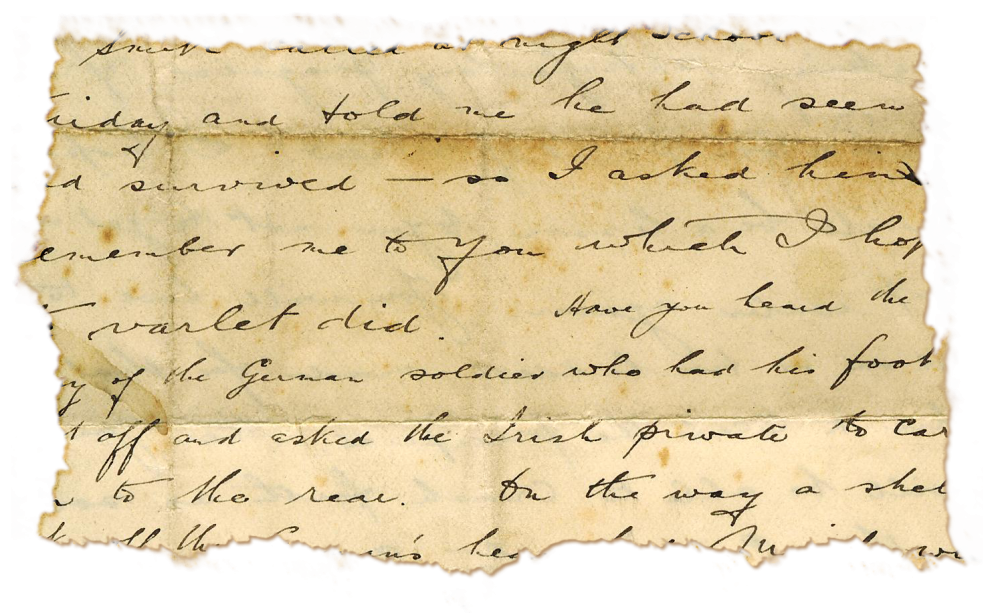 at night school
and told me he had seen
survived — so I asked him
me to you which I
varlet did. Have you heard the
of the German soldier who had his foot
off and asked the Irish private to
to the rear. On the way a
off the German's